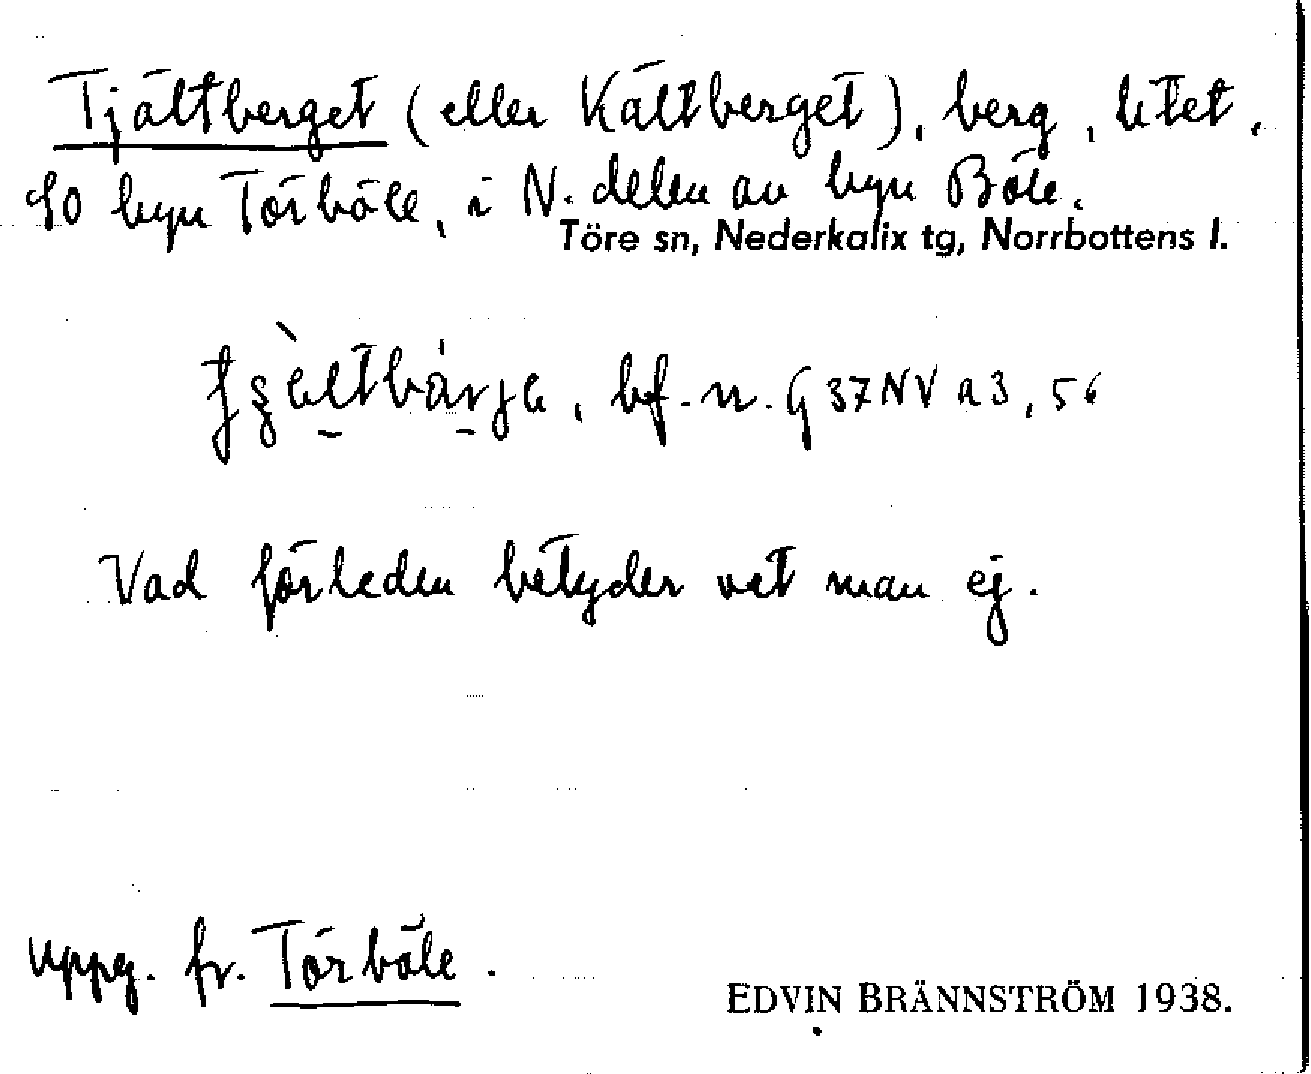 Tjältberget (eller Kältberget), berg, litet,
SO byn Törböle, i N. delen av byn Böle.
Töre sn, Nederkalix tg, Norrbottens l.
bf. n. G 37 NV a 3, 56
Vad förleden betyder vet man ej.
Uppg. fr. Törböle.
EDVIN BRÄNNSTRÖM 1938.